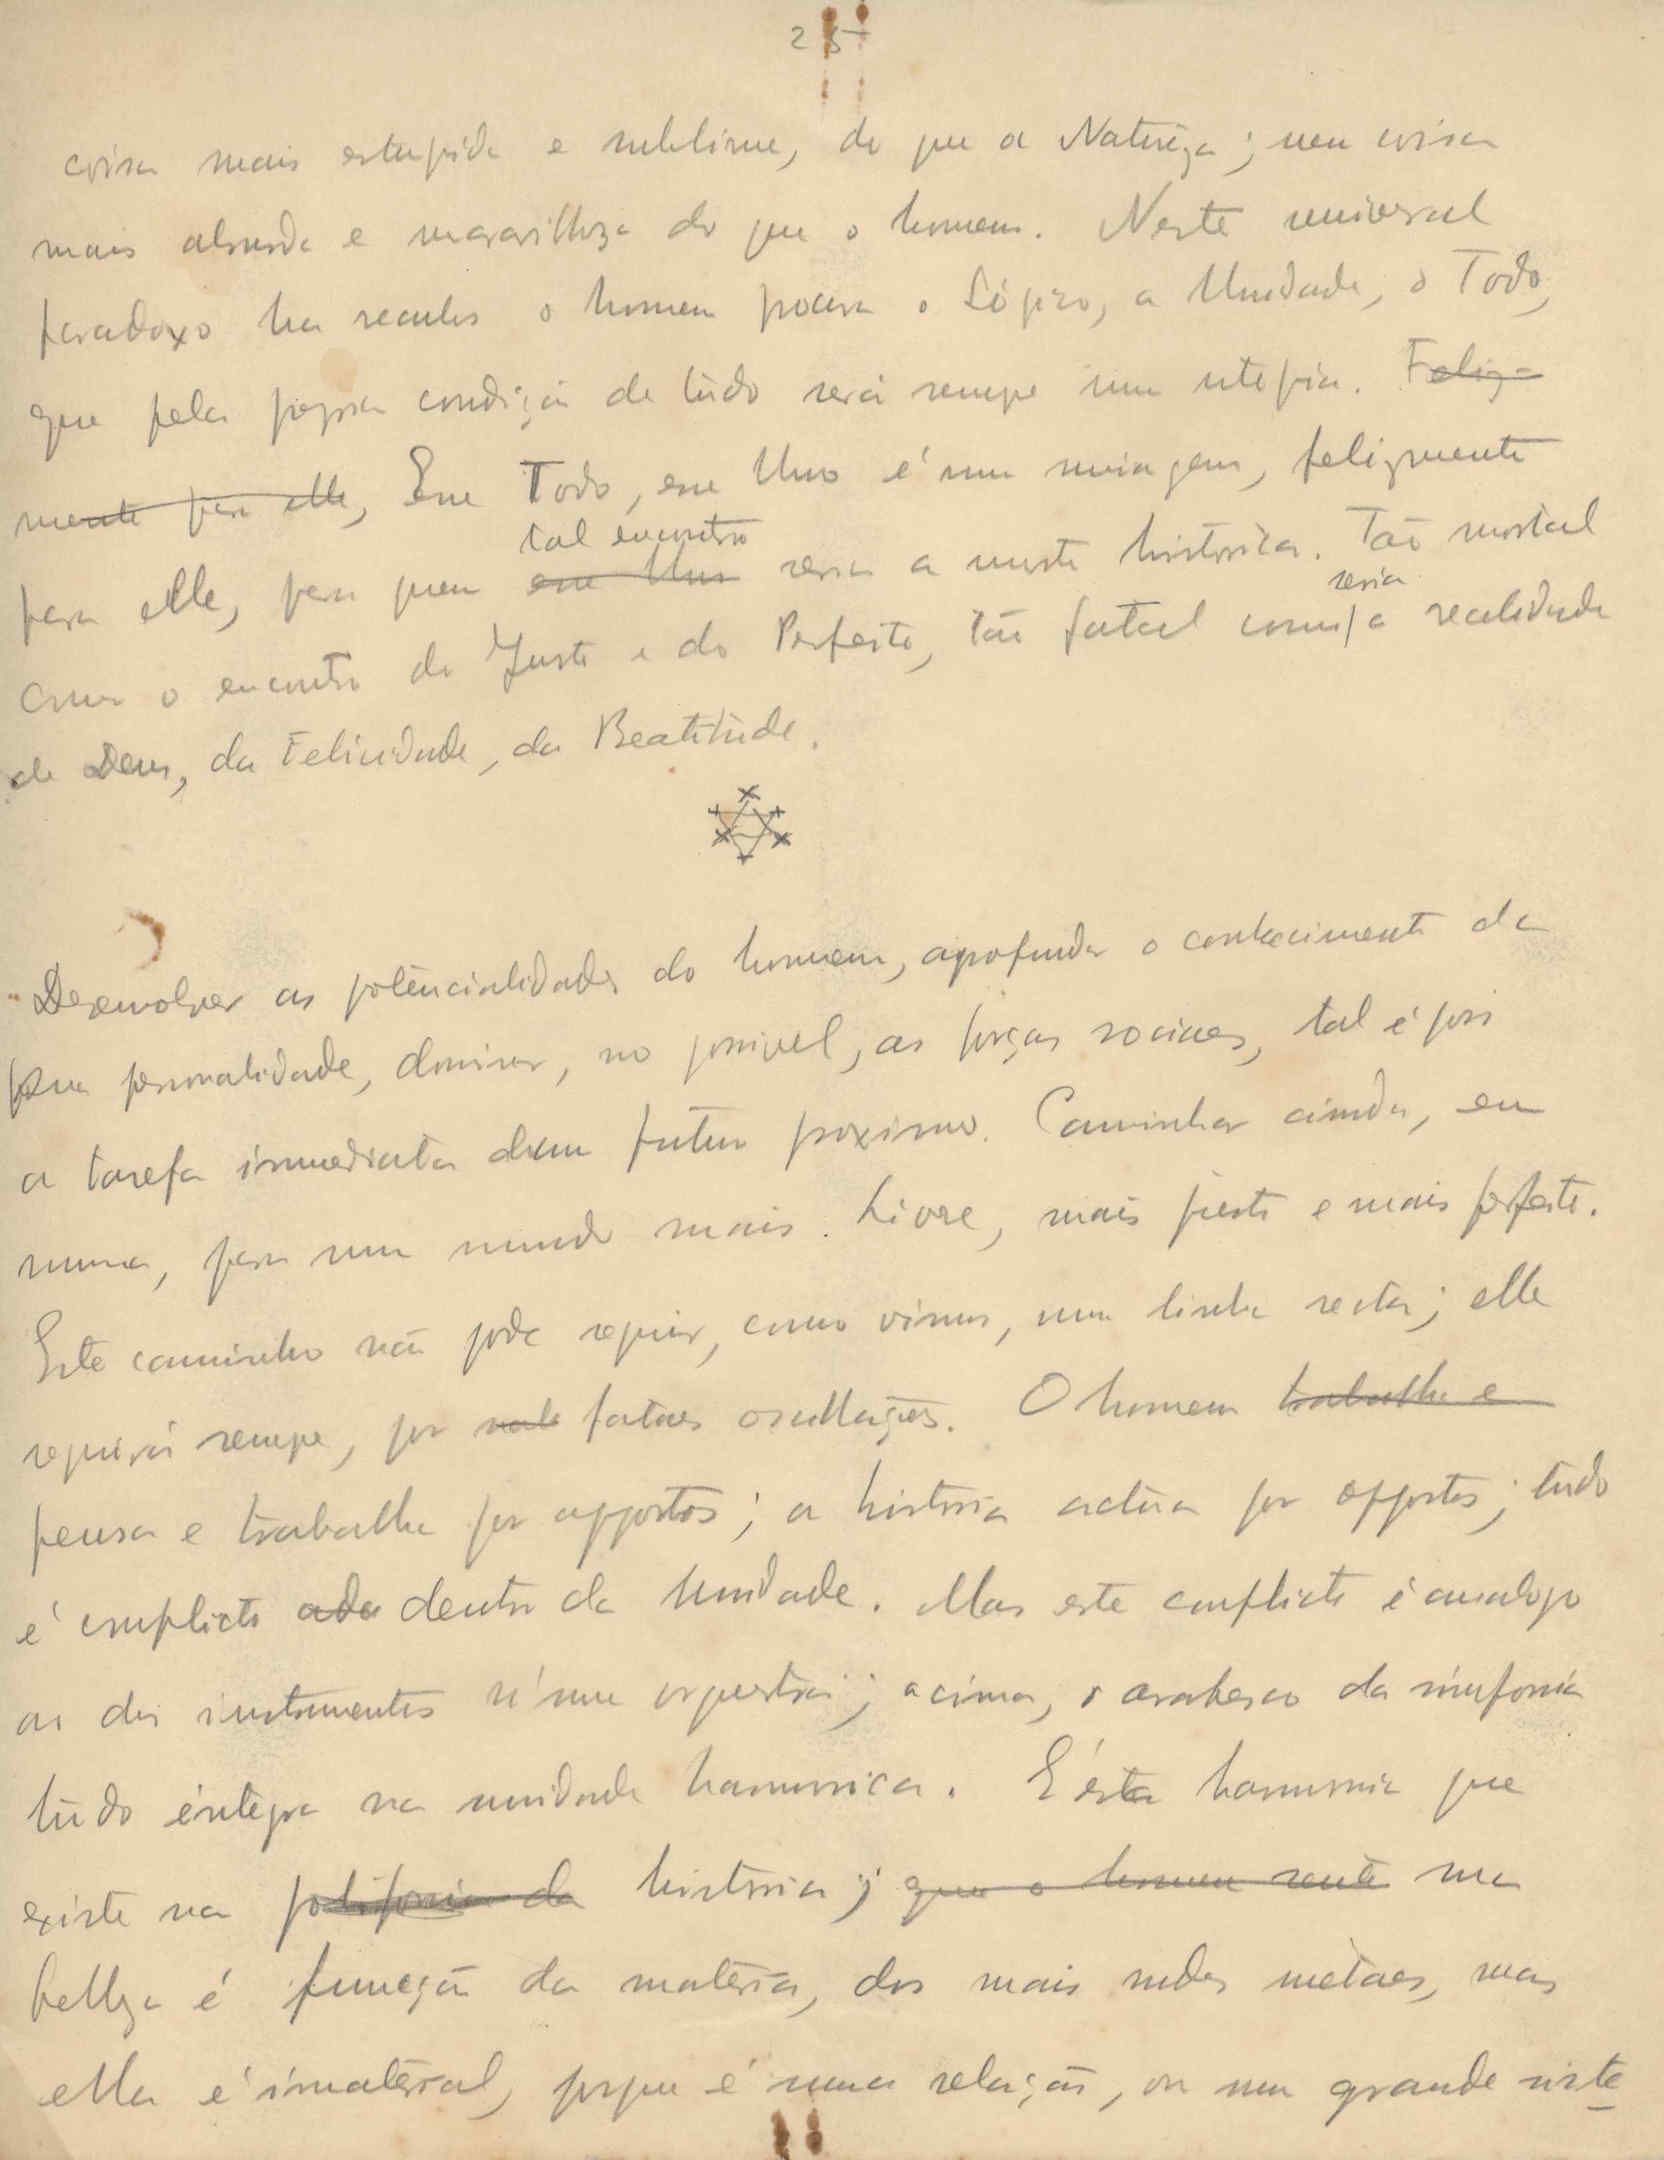 25
coisa mais estupida e sublime, do que a Natureza; nem coisa
mais absurda e maravilhoza do que o homem. Neste universal
paradoxo ha seculos o homem procura o Lógico, a Unidade, o Todo,
que pela propria condição de tudo será sempre uma utopia. Feliz-
mente para elle, Esse Todo, esse Uno é uma miragem, felizmente
tal encontro
para elle, para quem esse Uno seria a morte historica. Tão mortal
seria
como o encontro do Justo e do Perfeito, tão fatal como a realidade
de Deus, da Felicidade, da Beatitude.
Desenvolver as potencialidades do homem, aprofundar o conhecimento da
sua personalidade, dominar, no possivel, as forças sociaes, tal é pois
a tarefa immediata dum futuro proximo. Caminhar ainda, em
suma, para um mundo mais livre, mais justo e mais perfeito.
Este caminho não pode seguir, como vimos, uma linha recta; elle
seguirá sempre, por fataes oscillações. O homem trabalha e
pensa e trabalha por oppostos; a historia actúa por oppostos; tudo
é conflicto dentro da Unidade. Mas este conflicto é analogo
ao dos instrumentos n'uma orquestra; acima, o arabesco da sinfonia
tudo integra na unidade harmonica. E ésta harmonia que
existe na polifonia da historia; que o homem sente sua
belleza é funcção da materia, dos mais rudes metaes, mas
ella é imaterial, porque é uma relação, ou um grande siste